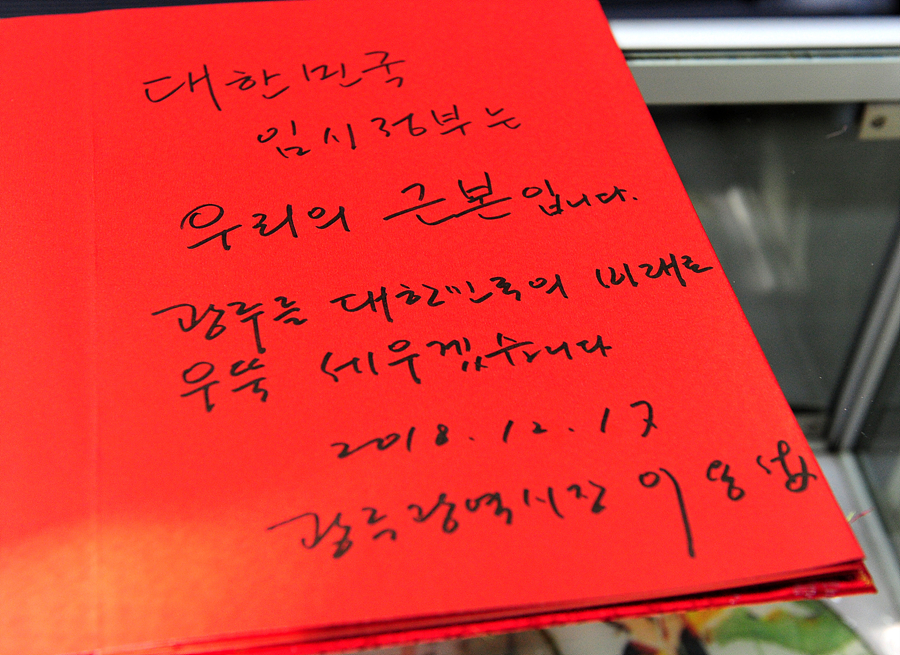 대한민국
임시정부는
우리의 근본입니다.
광주를 대한민국의 미래로
우뚝 세우겠습니다
2018. 12. 17
광주광역시장 이용섭